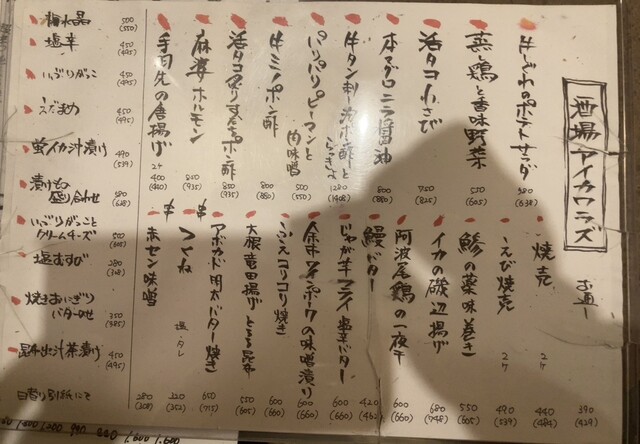 酒場アイカワラズ
お通し 390 (429)
牛しぐれのポテトサラダ 580 (638)
蒸し鶏と香味野菜 550 (605)
活タコわさび 750 (825)
本マグロニラ醤油 800 (880)
牛タン刺し泡ポン酢とらっきょ 1280 (1408)
パリパリピーマンと肉味噌 500 (550)
牛ミノポン酢 800 (880)
活タコ炙りすだちポン酢 850 (935)
麻婆ホルモン 850 (935)
手羽先の唐揚げ 2ケ 400 (440)
焼売 2ケ 440 (484)
えび焼売 2ケ 490 (539)
鯵の薬味巻き 550 (605)
イカの磯辺揚げ 680 (748)
阿波尾鶏の一夜干 600 (660)
鰻バター 420 (462)
じゃが牛マライ 塩辛バター 600 (660)
金木アインポークの味噌漬り 600 (660)
ふえコリコリ焼き 600 (660)
大根竜田揚げとろろ昆布 550 (605)
アボカド明太バター焼き 650 (715)
つくね 塩・タレ 320 (352)
赤セン味噌 280 (308)
梅水晶 500 (550)
塩辛 450 (495)
いぶりがっこ 450 (495)
えだまめ 450 (495)
蛍イカ汁漬け 490 (539)
漬けもの盛り合わせ 580 (638)
いぶりがっことクリームチーズ 500
塩むすび 280 (308)
焼きおにぎりバターのせ 350 (385)
昆布出汁茶漬け 450 (495)
日替り別紙にて